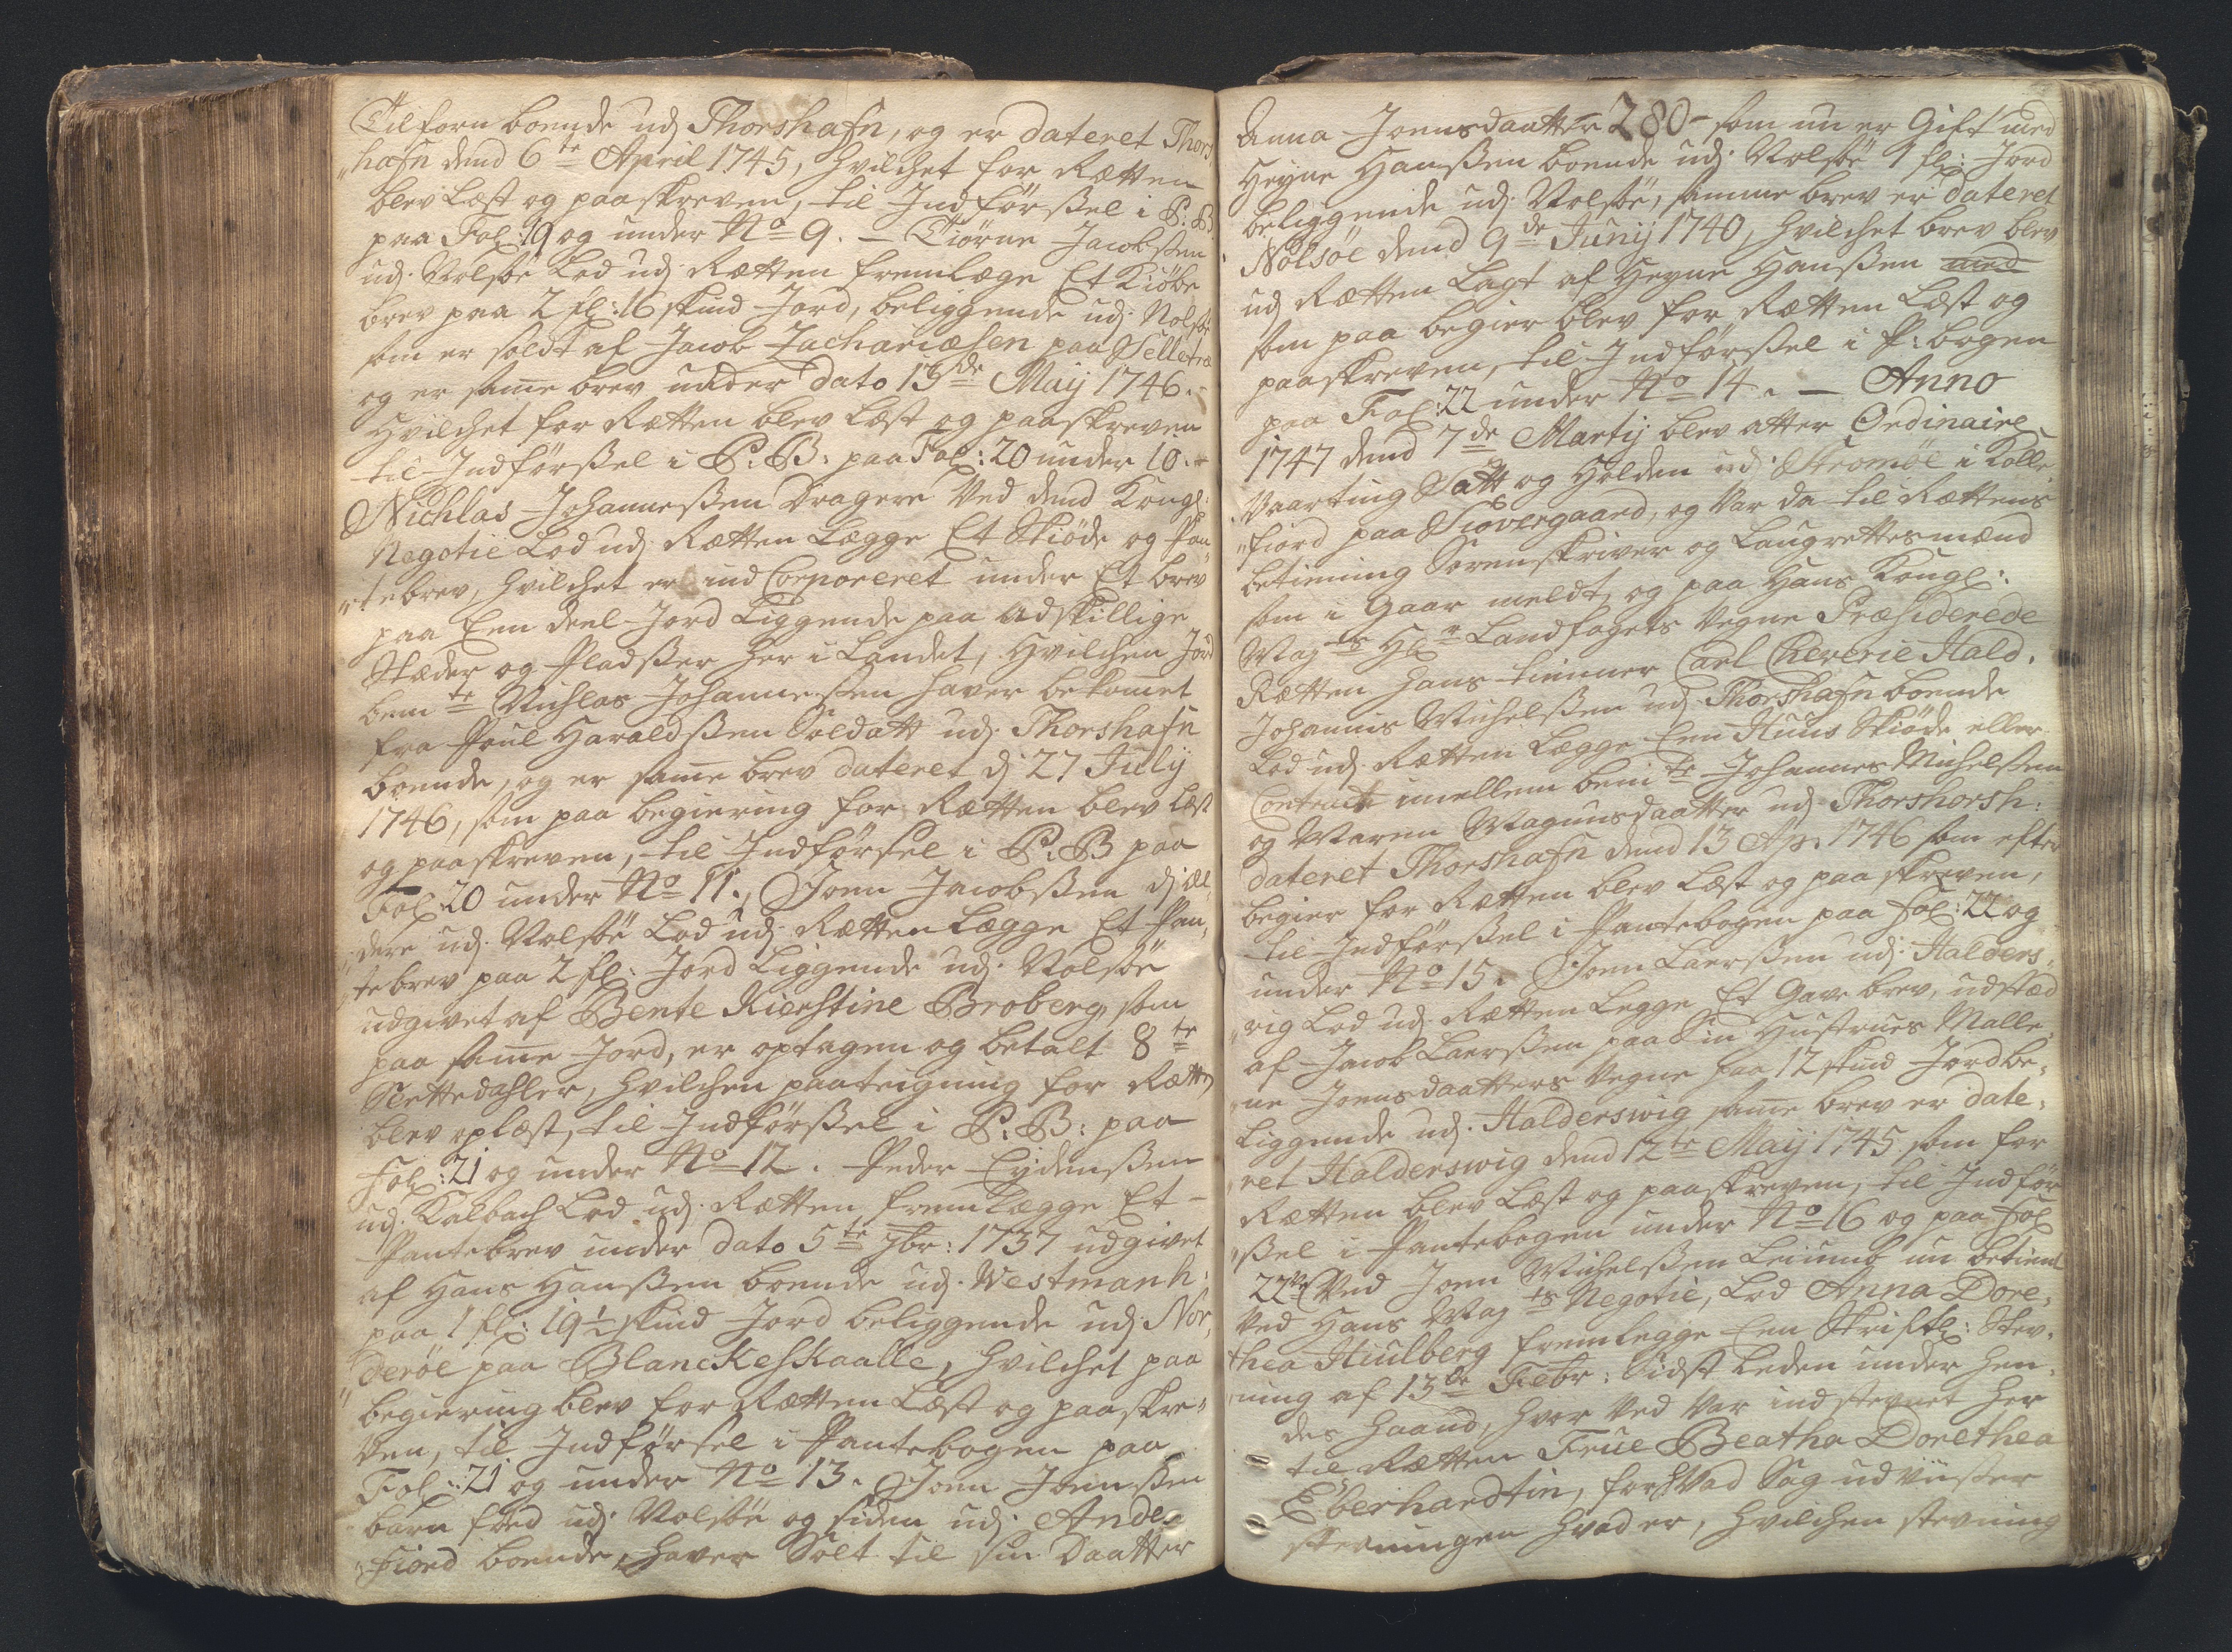 Tilforn boende udj Thorshafn, og er dateret Thors
„hafn dend 6te April 1745, hvilchet for Rætten
blev læst og paaskreven, til Indførßel i P: B:
paa Fol: 19 og under No 9. – Tiørne Jacobßen
udj Nolsöe lod udj Rætten fremlæge Et Kiöbe
brev paa 2 fl: 16 skind Jord, beliggende udj Nolsöe
som er soldt af Jacob Zachariæsen paa Selletræ
og er same brev under dato 13de Maij 1746.
Hvilchet for Rætten blev læst og paaskreven
til Indførßel i P: B: paa Fol: 20 under 10. –
Nichlas Johanneßen Dragere ved dend Kongl:
Negotie lod udj Rætten Lægge Et Skiöde og Pan„
„tebrev, hvilchet er ind Corporeret under Et brev
paa Een deel Jord Liggende paa adskillige
Stæder og Pladßer her i Landet, hvilchen Jord
bemte Nichlas Johanneßen haver bekomet
fra Poul Haraldßen Soldatt udj Thorshafn
boende, og er same brev dateret dj 27 July
1746, som paa begiering for Rætten blev læst
og paaskreven, til Indførsel i P: B paa
Fol: 20 under No 11., Joen Jacobßen dj æl„
„dere udj Nolsöe Lod udj Rætten Lægge Et Pan„
„tebrev paa 2 fl: Jord Liggende udj Nolsöe
udgivet af Bente Kierstine Broberg, som
paa same Jord, er optagen og betalt 8te
Slettedahler, hvilchen paateigning for Rætten
blev oplæst, til Indførßel i P: B: paa
Fol: 21 og under No 12. Peder Eÿdenßen
udj Kalbach Lod udj Rætten fremlægge Et –
Pantebrev under dato 5te 7br: 1737 udgivet
af Hans Hanßen boende udj Westmanh:
paa 1 fl: 19½ skind Jord beliggende udj Nor„
„deröe paa Blanckeskaalle, hvilchet paa
begiering blev for Rætten Læst og paaskre„
ven, til Indførsel i Pantebogen paa
Fol: 21 og under No 13. Joen Joenßen
barn föed udj Nolsöe og siden udj Ande„
„fiord boende, haver Solt til sin Daatter
Anna Joensdaatter 280 – som nu er Gift med
Heÿne Hanßen boende udj Nolsöe 1 fl: Jord
beliggende udj Nolsöe, samme brev er dateret
Nolsöe dend 9de Junij 1740, hvilchet brev blev
udj Rætten Lagt af Heÿne Hanßen med
som paa begier blev for Rætten Læst og
paaskreven, til Indførßel i P: bogen
paa Fol: 22 under No 14. – Anno
1747 dend 7de Martij blev atter Ordinaire
Vaarting Satt og Holden udj Strömöe i Kolle„
„fiord paa Siovergaard, og var da til Rættens
betiening Sorenskriver og Laugrettesmænd
som i Gaar meldt, og paa Hans Kongl:
Mayts Hr Landfogets Vegne Præsiderede
Rætten hans tienner Carl Cheverie Hald.
Johannis Michelßen udj Thorshafn boende
Lod udj Rætten Lægge Een Huus Skiöde eller
Contract imellem bemte Johannes Michelßen
og Maren Magnusdaatter udj Thorshorsh:
dateret Thorshafn dend 13 Ap: 1746 som efter
begier for Rætten blev Læst og paa skreven,
til Indførßel i Pantebogen paa fol: 22 og
under No 15. Joen Laerßen udj Halders„
„vig Lod udj Rætten Legge Et Gave brev, udstæd
af Jacob Laerßen paa Sin Hustrues Malle„
„ne Joensdaatters Vegne paa 12 skind Jord be„
Liggende udj Halderswig same brev er date„
„ret Halderswig dend 12te Maij 1745 som for
Rætten blev Læst og paaskreven, til Indför
„ßel i Pantebogen under No 16 og paa fol
22 Ved Joen Michelßen Leiumb nu betient
ved Hans Mayts Negotie, Lod Anna Dore„
thea Hiulberg fremlegge Een Skriftl: Stev„
„ning af 13de Febr: Sidst leden under hen„
des haand, hvor ved var indstevnet her
til Rætten Frue Beatha Dorethea
Eberhardtin, for hvad Sag udviißer
stevningen hvad er, hvilchen stevning